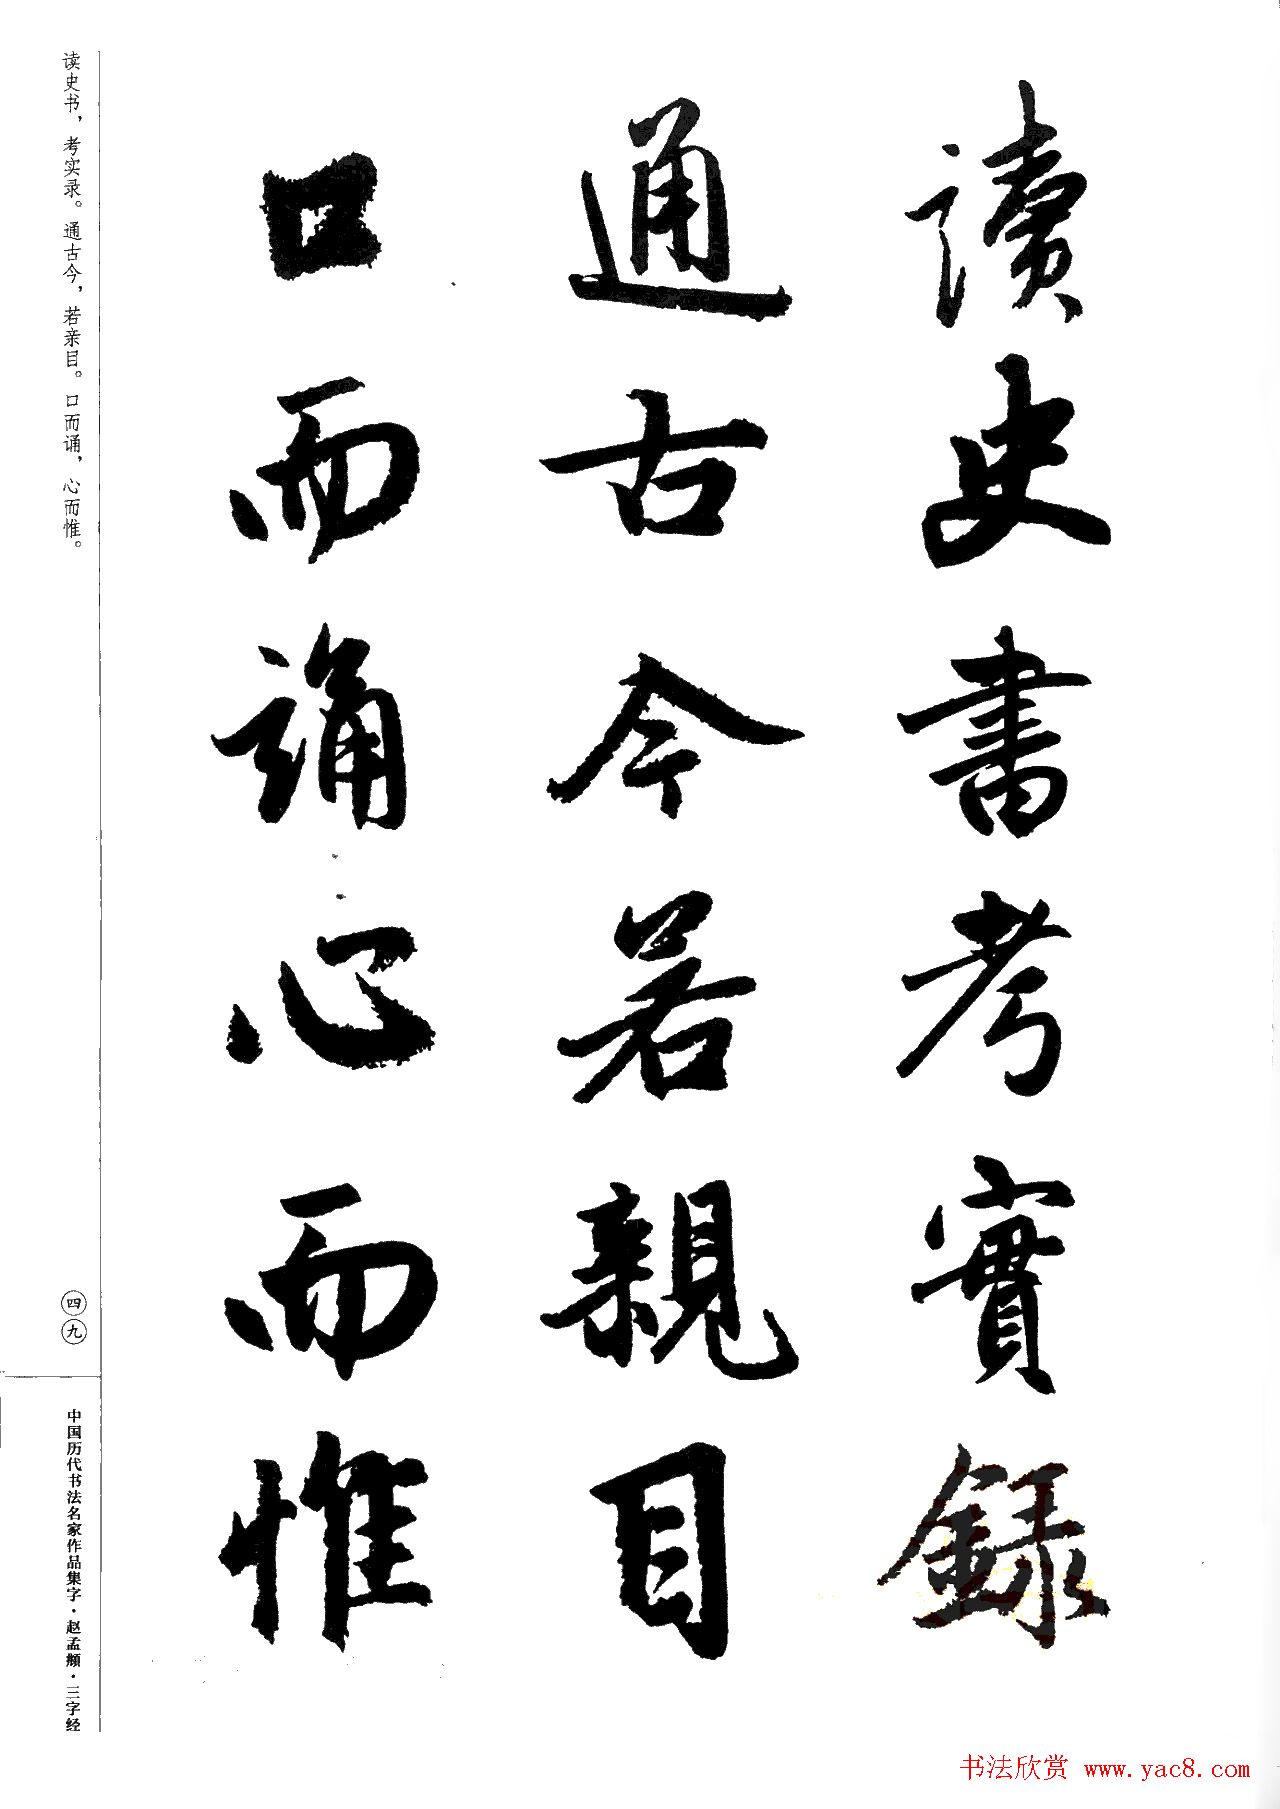 讀史書考實錄
通古今若親目
口而誦心而惟
读史书，考实录。通古今，若亲目。口而诵，心而惟。
四九
中国历代书法名家作品集字·赵孟頫·三字经
书法欣赏 www.yac8.com